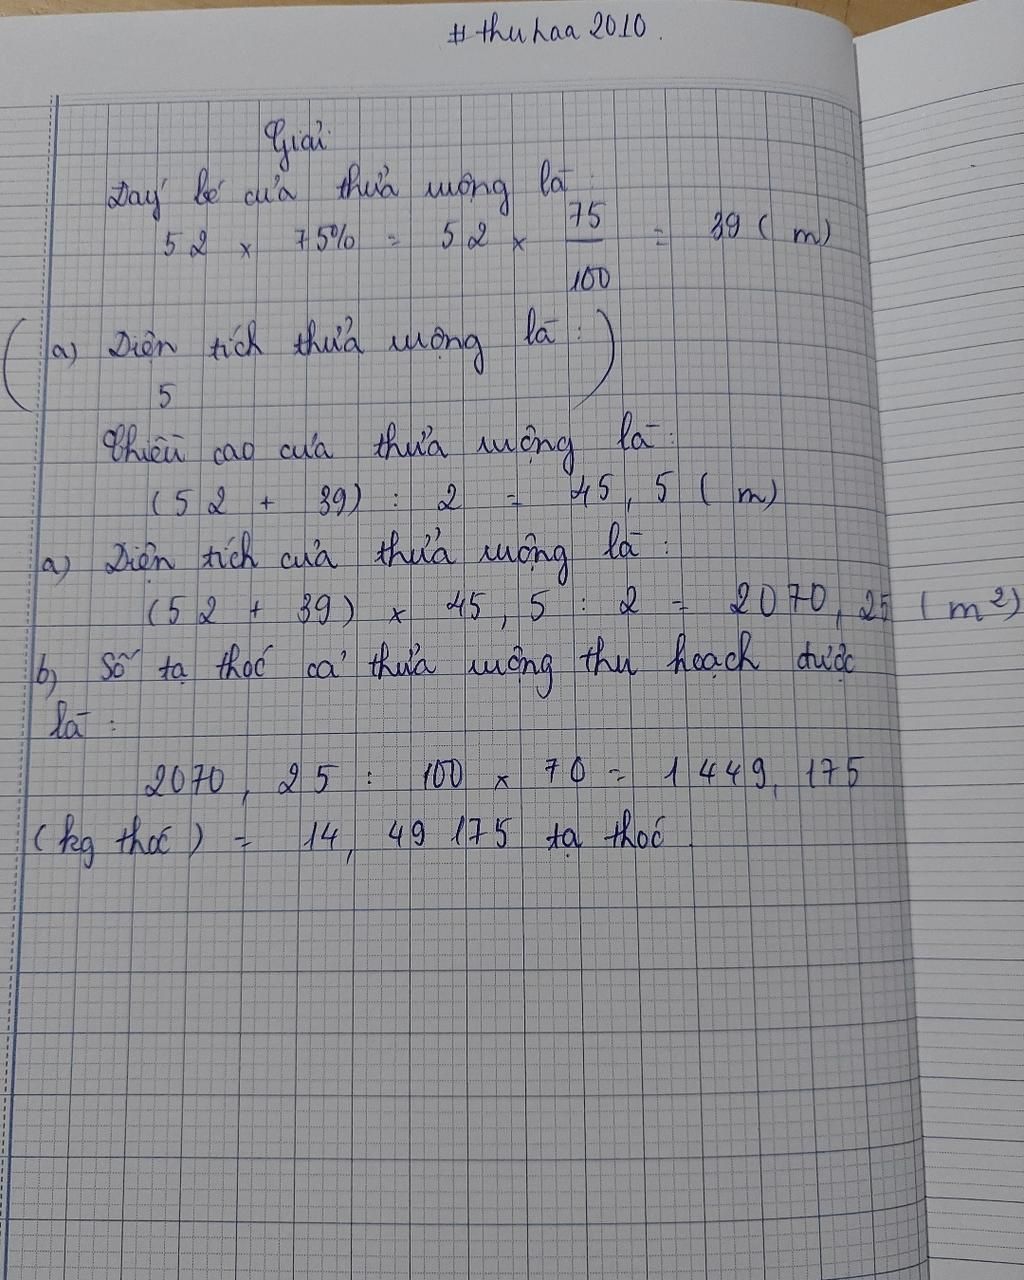 #thuhaa2010.
Giải
Đáy bé của thửa ruộng là:
52 × 75% = 52 × 75/100 = 39 (m)
(a) Diện tích thửa ruộng là:)
5
Chiều cao của thửa ruộng là:
(52 + 39) : 2 = 45,5 (m)
a) Diện tích của thửa ruộng là:
(52 + 39) × 45,5 : 2 = 2070,25 (m²)
b) Số tạ thóc cả thửa ruộng thu hoạch được
là:
2070,25 : 100 × 70 = 1449,175
(kg thóc) = 14,49175 tạ thóc